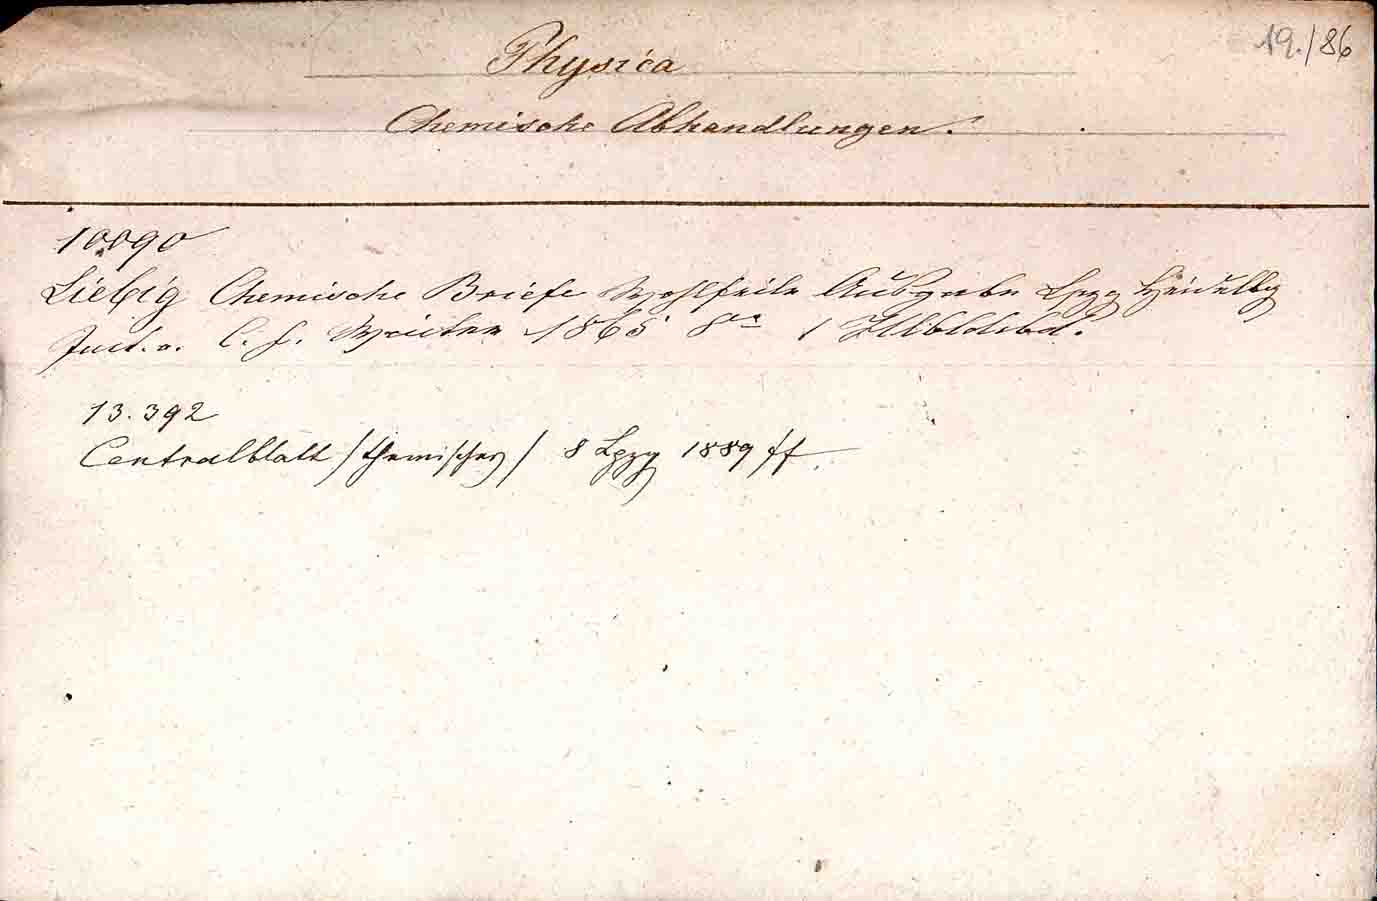 19./86
Physica
Chemische Abhandlungen.
10090
Liebig Chemische Briefe Wohlfeile Ausgabe Lpzg Heidelbg
Just. v. C. f. Winter 1865 8vo 1 Hlbldrbd.
13.392
Centralblatt /chemisches/ 8 Lpzg 1889 ff.